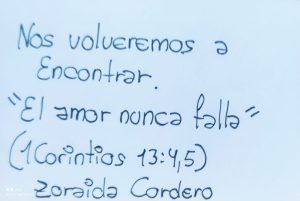 Nos volveremos a
Encontrar.
"El amor nunca falla"
(1 Corintios 13:4,5)
Zoraida Cordero